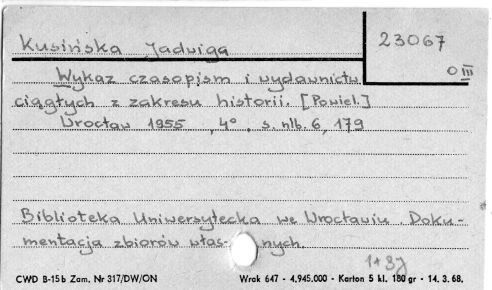 Kusińska Jadwiga
23067
O III
Wykaz czasopism i wydawnictw
ciągłych z zakresu historii. [Powiel.]
Wrocław 1955 , 4°, s. nlb. 6, 179
Biblioteka Uniwersytecka we Wrocławiu. Doku-
mentacja zbiorów włas- nych.
CWD B-15b Zam. Nr 317/DW/ON
Wrak 647 - 4,945.000 - Karton 5 kl. 180 gr - 14. 3. 68.